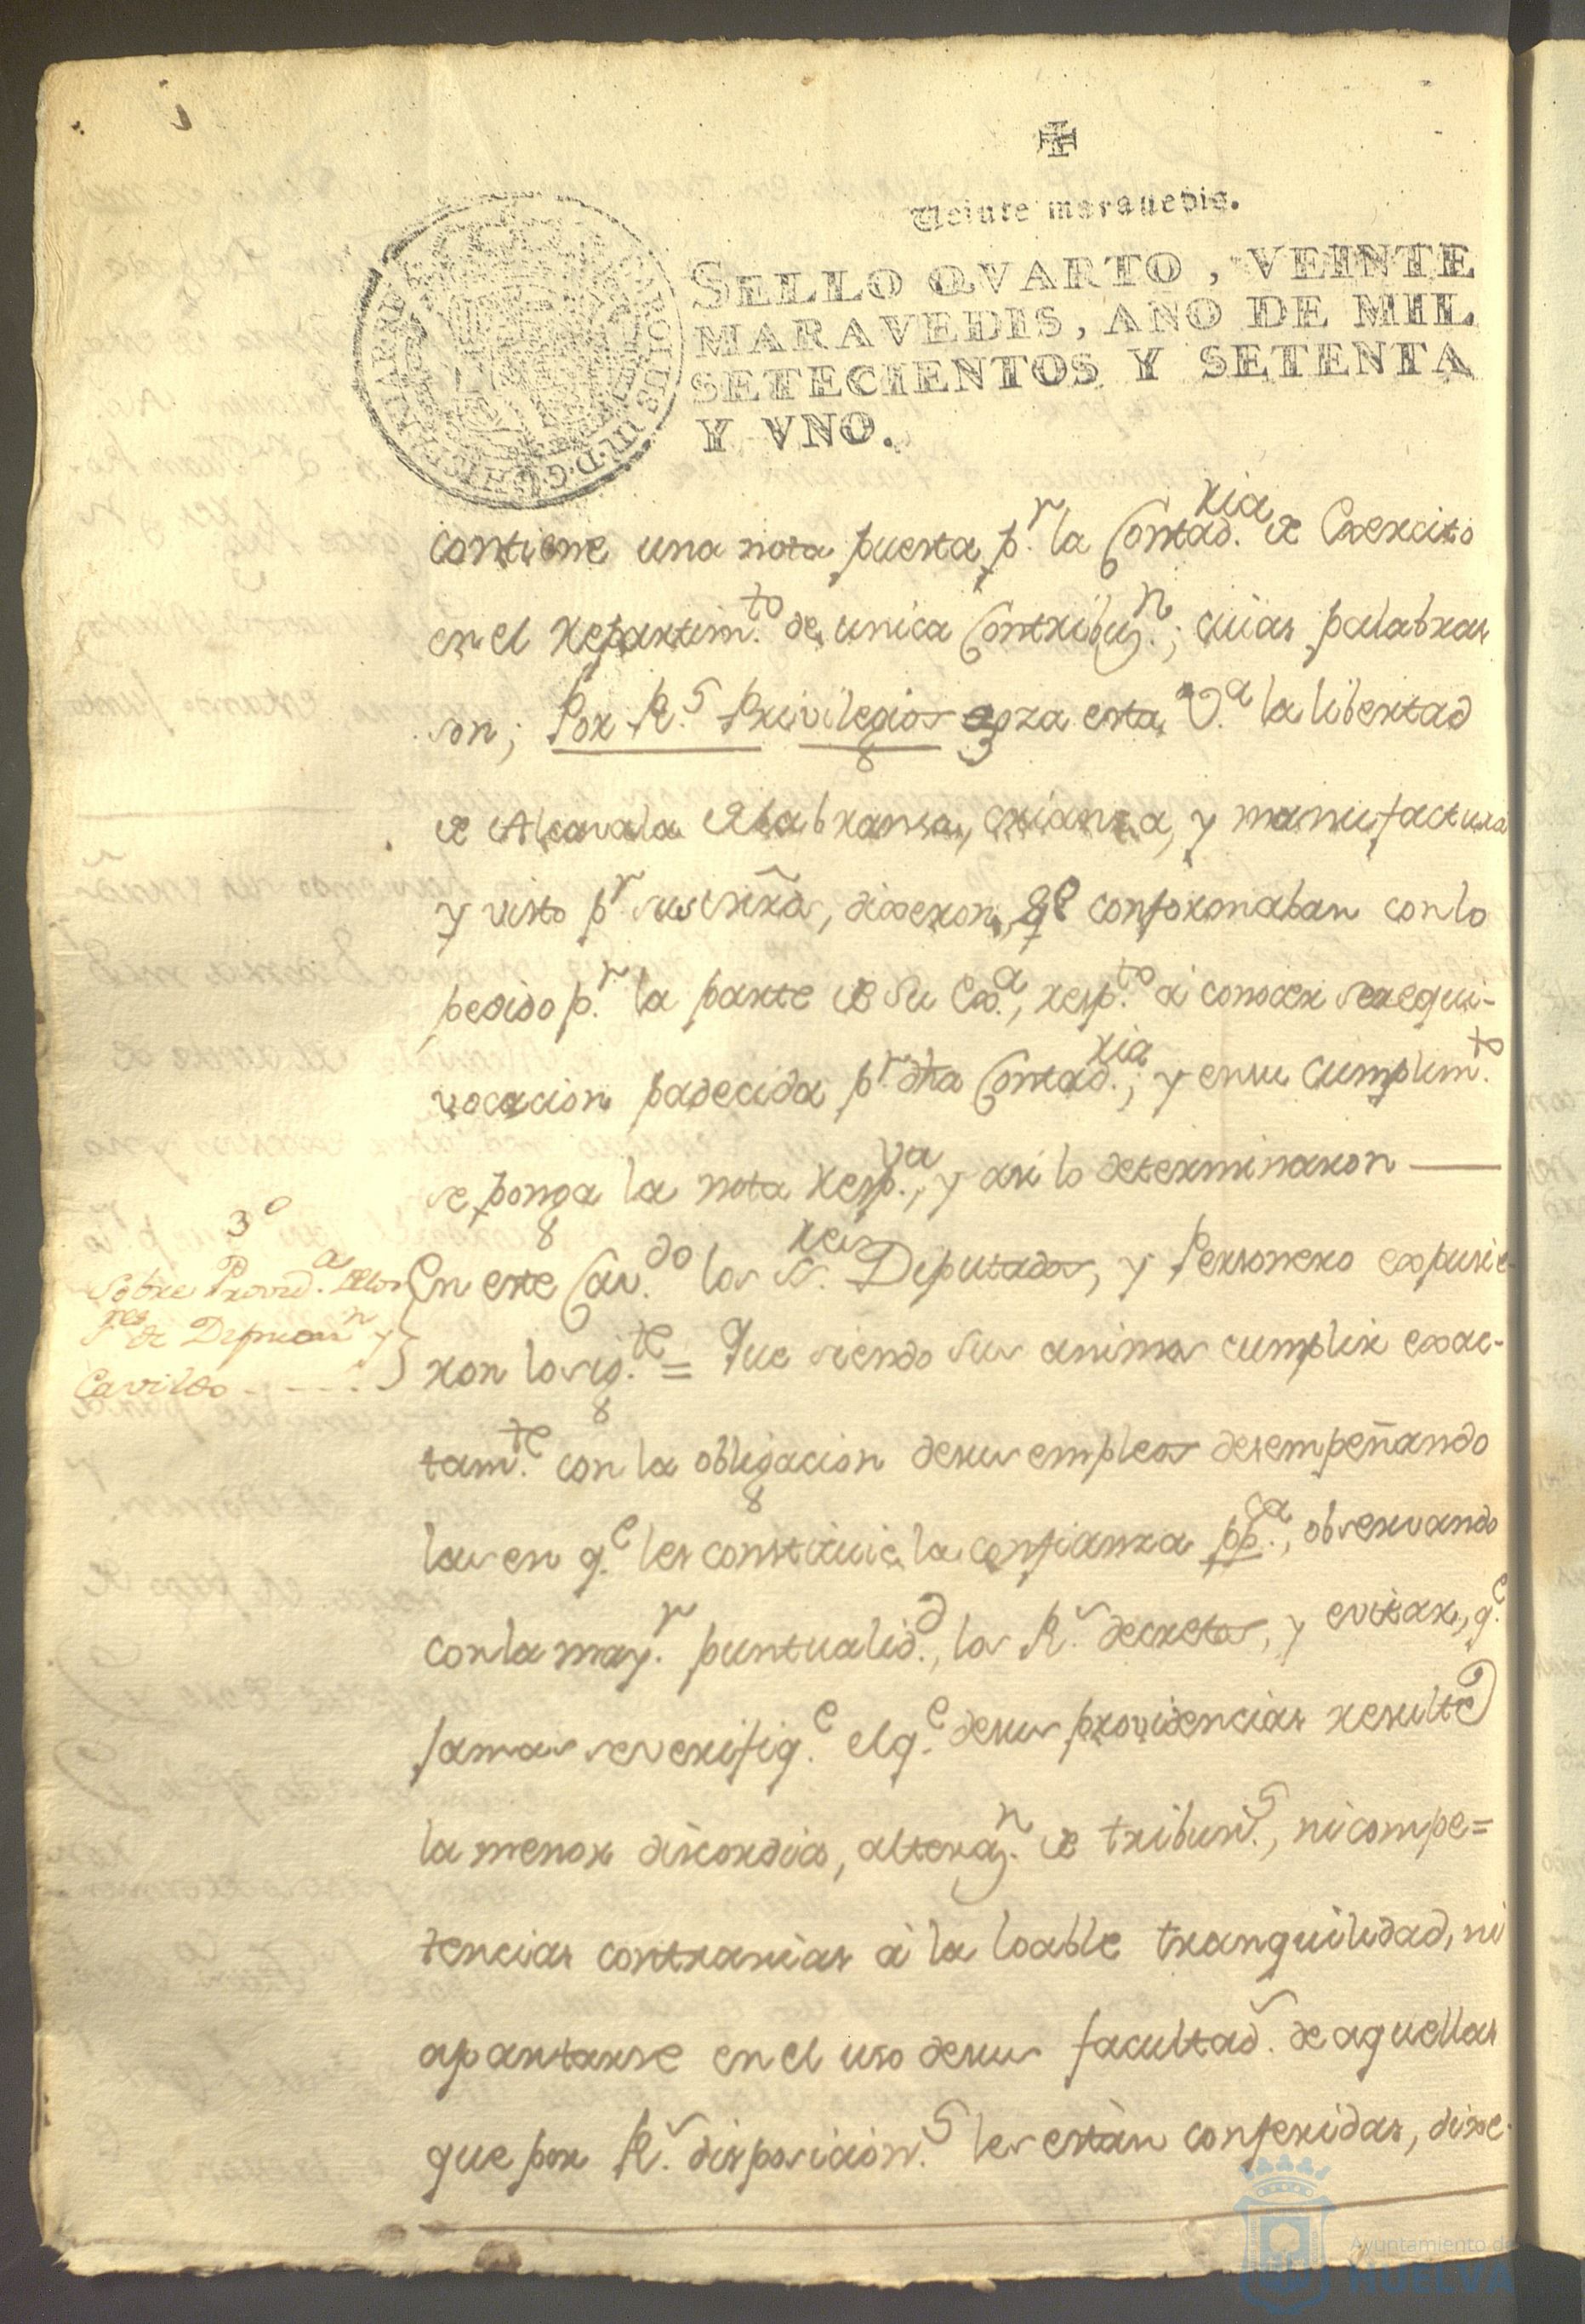 Veinte maravedis.
SELLO QVARTO, VEINTE
MARAVEDIS, AÑO DE MIL
SETECIENTOS Y SETENTA
Y VNO.
contiene una nota puesta p.r la Contad.ria de Exercito
en el repartim.to de unica Contribuz.n; cuias palabras
son; Por R.s Privilegios goza esta V.a la libertad
de Alcavala labranza, crianza, y manufactura
y visto p.r sus mrds, dixeron, q.e conformaban con lo
pedido p.r la parte de su Ex.a, resp.to a conocer ser equi-
vocacion padecida p.r dha Contad.ria; y en su cumplim.to
se ponga la nota resp.va, y asi lo determinaron
3.o
Sobre Provid.a de los
res de Diputaon.n y
Cavildo
En este Cav.do los S.res Diputados, y Personero expusie-
ron lo sig.te = Que siendo sus animos cumplir exac-
tam.te con la obligacion de sus empleos desempeñando
las en q.e les constituie la confianza pp.ca, observando
con la may.r puntualid.d, los R.s decretos, y evitar, q.e
jamas se verifiq.e el q.e de sus providencias resulte
la menor discordia, alteraz.n de tribun.s, ni compe=
tencias contrarias á la loable tranquilidad, ni
apartarse en el uso de sus facultad.s de aquellas
que por R.s disposicion.s les están conferidas, dixe-
Ayuntamiento de
HUELVA